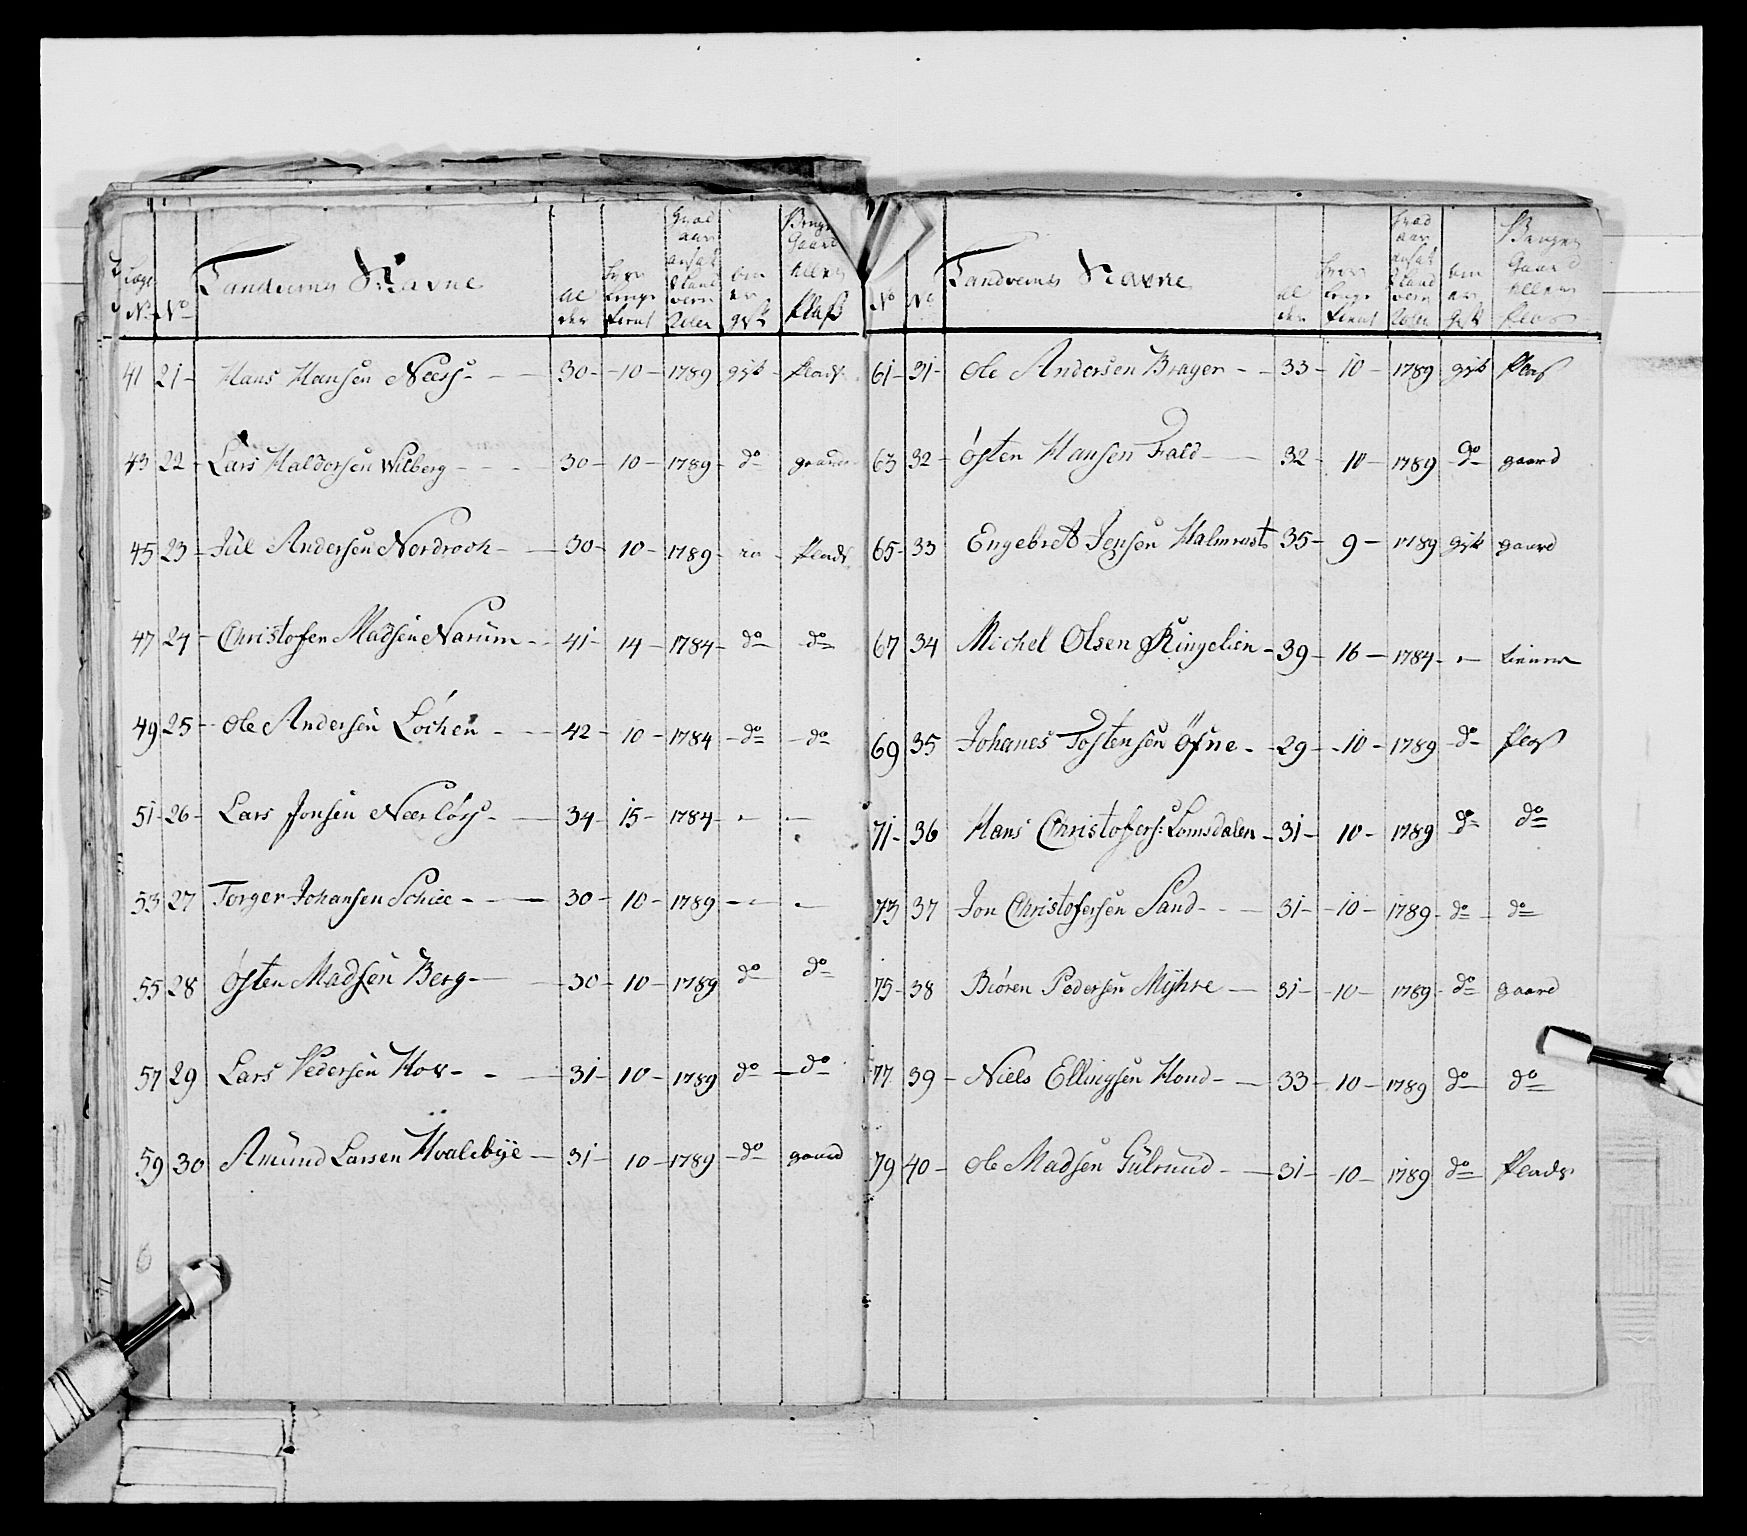 No No Landværns Navne Al der om er gift Plass
41 21 - Hans Hansen Neess - 30 - 10 - 1789 gift - Plads
43 22 - Lars Haldorsen Wilberg - - - 30 - 10 - 1789 - do gaard
45 23 - Jul Andersen Nordrook - 30 - 10 - 1789 - - Plads
47 24 - Christofer Madsen Narum - 41 - 14 - 1784 - do - do
49 25 - Ole Andersen Löchen - 42 - 10 - 1784 - do - do
51 - 26 - Lars Jonsen Neerlöss - 34 - 15 - 1784 - - -
53 27 Torger Johansen Schiee - - 30 - 10 - 1789 - - -
55 28 Østen Madsen Berg - 30 - 10 - 1789 do do
57 29 Lars Pedersen Hov - - 31 - 10 - 1789 do - do
59 30 Amund Larsen Hvalebÿe - 31 - 10 - 1789 - do - gaard
6
No No Landværns Navne Al der om er gift Bruger Gaard eller Plas
61 - 31 - Ole Andersen Brager - - 33 - 10 - 1789 gift Plass
63 32 - Østen Hansen Fald - 32 - 10 - 1789 - do gaard
65 - 33 Engebret Jensen Halmrast 35 - 9 - 1789 gift gaard
67 34 Michel Olsen Ringelien - 39 - 16 - 1784 - -
69 35 Johanes Tostensen Öfne - 29 - 10 - 1789 do Plass
71 - 36 Hans Christofers: Lomsdalen - 31 - 10 - 1789 do do
73 37 Jon Christofersen Sand - - 31 - 10 - 1789 - do - do
75 - 38 Biören Pedersen Mÿhre - 31 - 10 - 1789 - do gaard
77 39 - Niels Ellingsen Hond - 33 - 10 - 1789 do do
79 40 - Ole Madsen Gulrund - 31 - 10 - 1789 do Plads